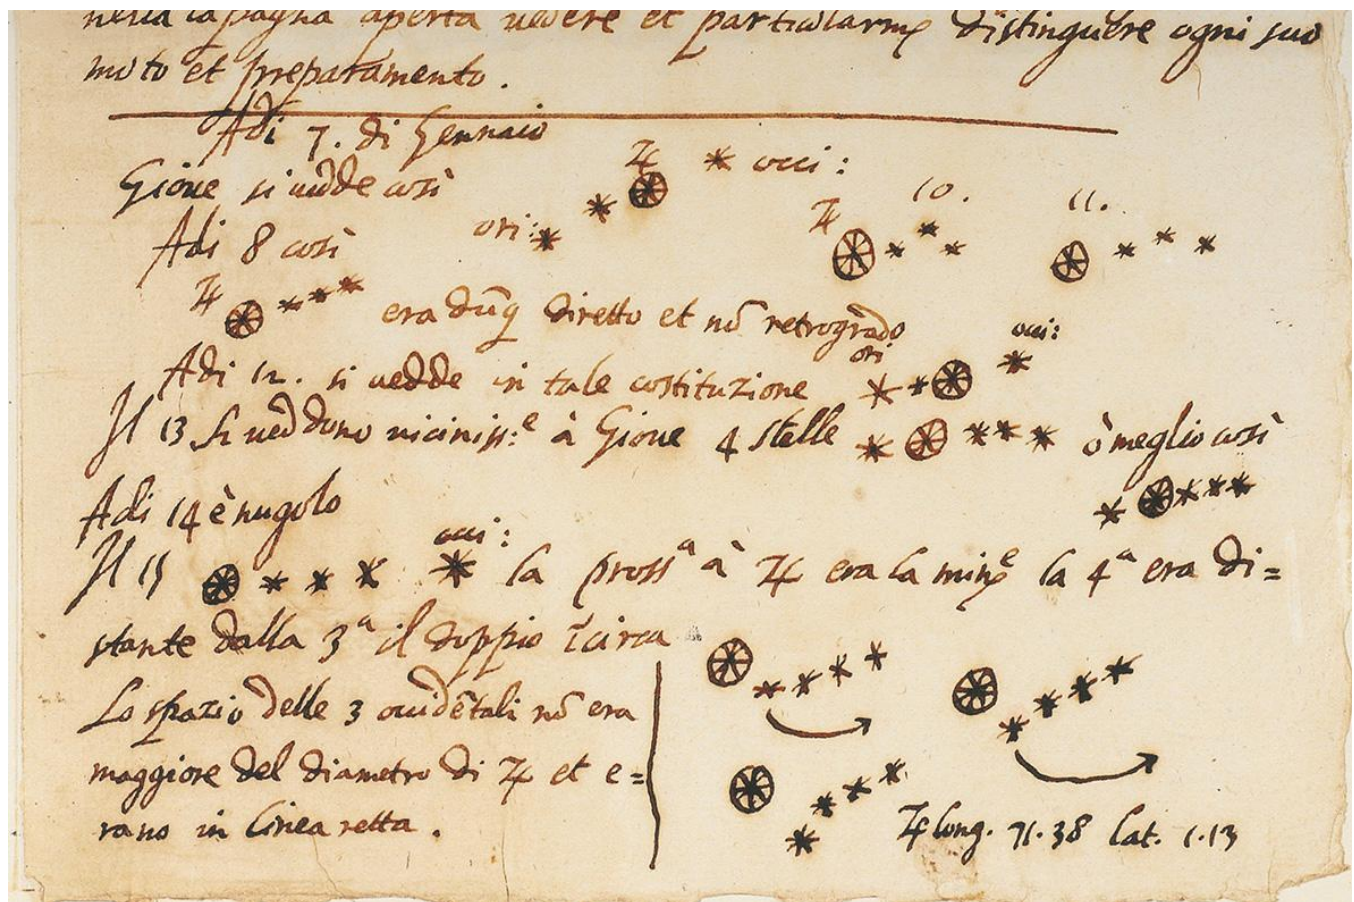 nella capagna aperta vedere et particularmẽ distinguere ogni suo
moto et preparamento.
Adi 7. di Gennaio
Giove si vedde così ♃ occi:
ori:
Adi 8 così ♃ 10. 11.
♃ era dũq diretto et nõ retrogrado
Adi 12. si vedde in tale costituzione ori occi:
Il 13 si veddono viciniss:ᵉ à Giove 4 stelle ò meglio così
Adi 14 è nugolo
Il 15 occi: la prossᵃ à ♃ era la minᵉ la 4ᵃ era di=
stante dalla 3ᵃ il doppio ĩcirca
Lo spazio delle 3 occidẽtali nõ era
maggiore del diametro di ♃ et e=
rano in linea retta.
♃ long. 71.38 lat. 1.13